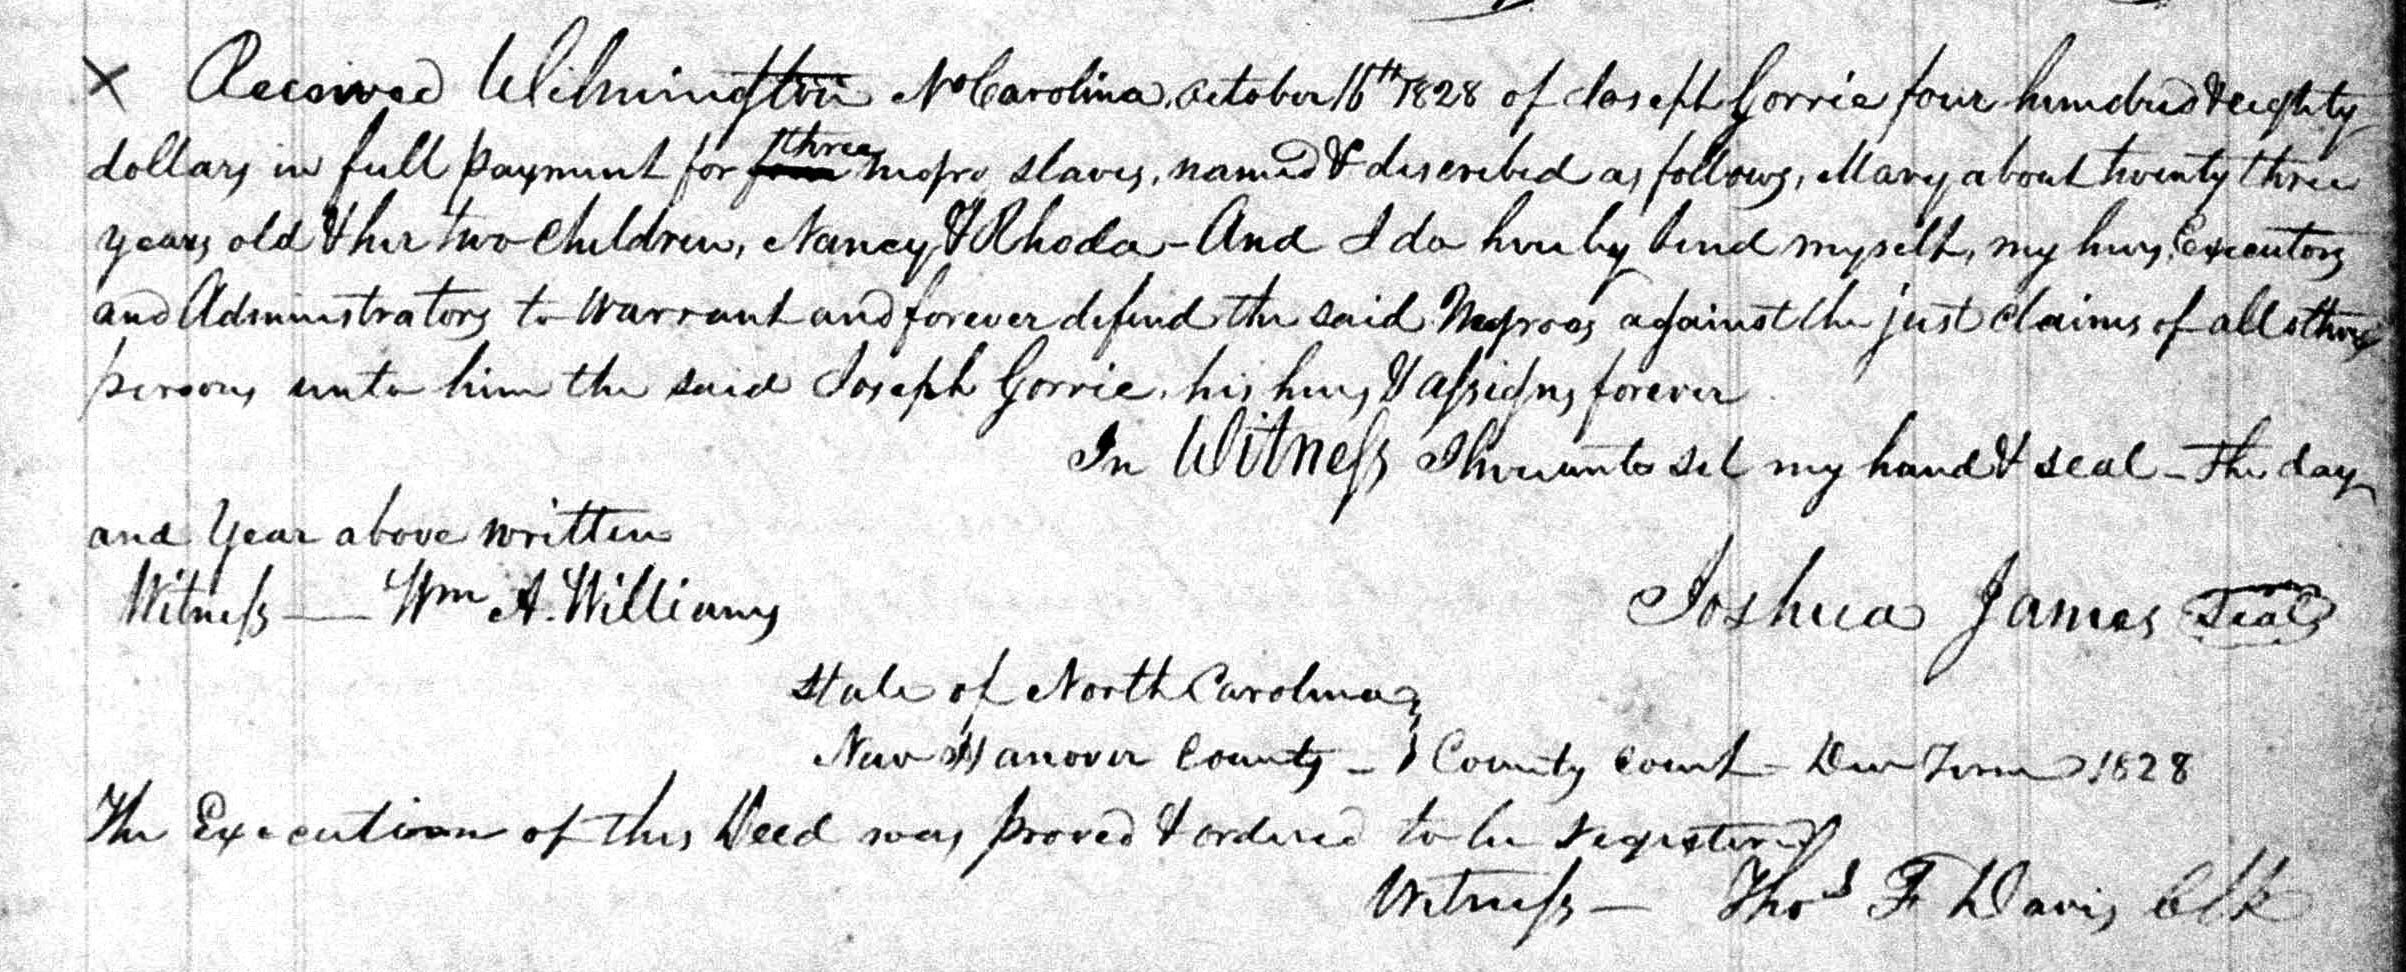 X Received Wilmington No Carolina, October 16th 1828 of Joseph Gorrie four hundred & eighty
dollars in full payment for three negro slaves, named & described as follows, Mary about twenty three
years old & her two children, Nancy & Rhoda - And I do hereby bind myself, my heirs, Executors
and Administrators to warrant and forever defend the said Negroes against the just claims of all other
persons unto him the said Joseph Gorrie, his heirs & assigns forever
In Witness I hereunto set my hand & seal - The day
and Year above written
Witness — Wm A. Williams
Joshua James Seal
State of North Carolina
New Hanover County - } County Court - Dec Term 1828
The Execution of this Deed was proved & ordered to be registered
Witness — Thos F Davis Clk